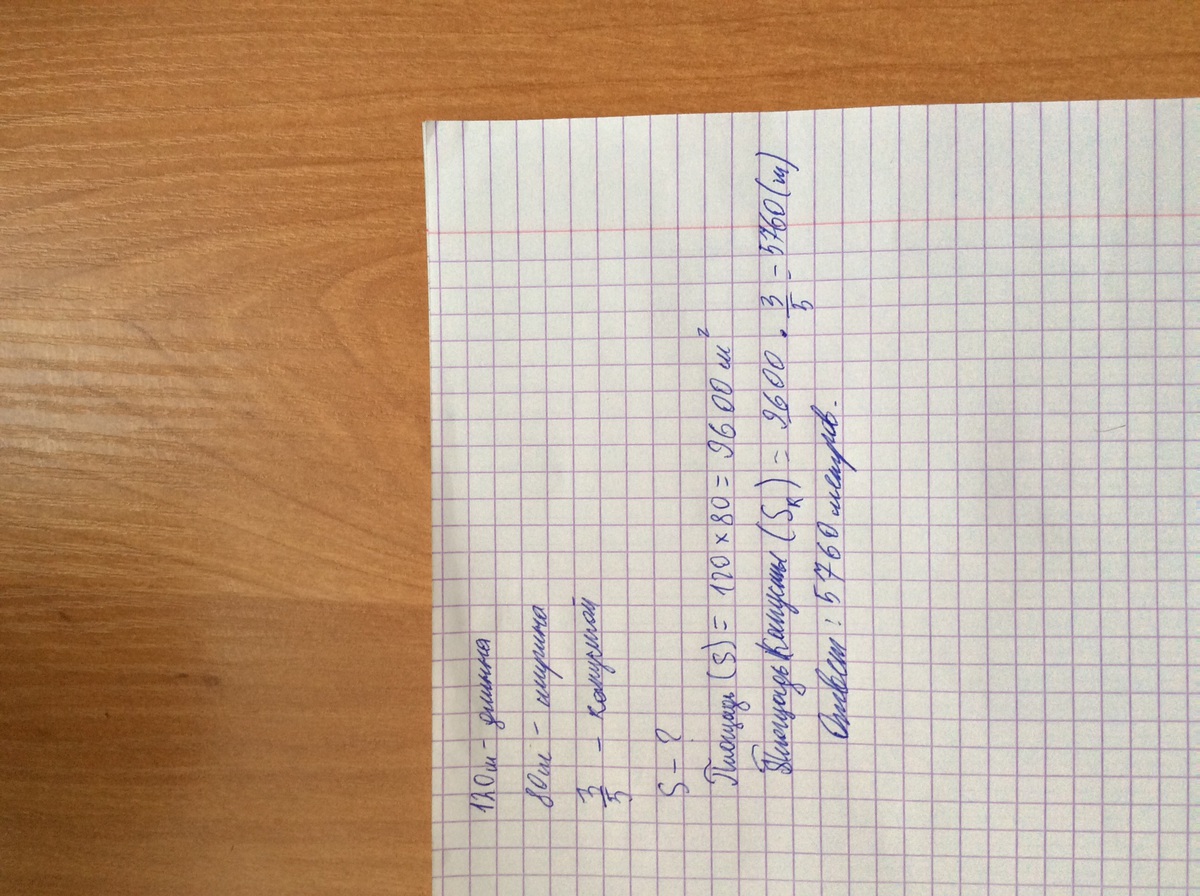 120 м - длинна
80 м - ширина
3/5 - капустой
S - ?
Площадь (S) = 120 x 80 = 9600 м²
Площадь капусты (Sк) = 9600 · 3/5 - 5760 (м)
Ответ : 5760 метров.